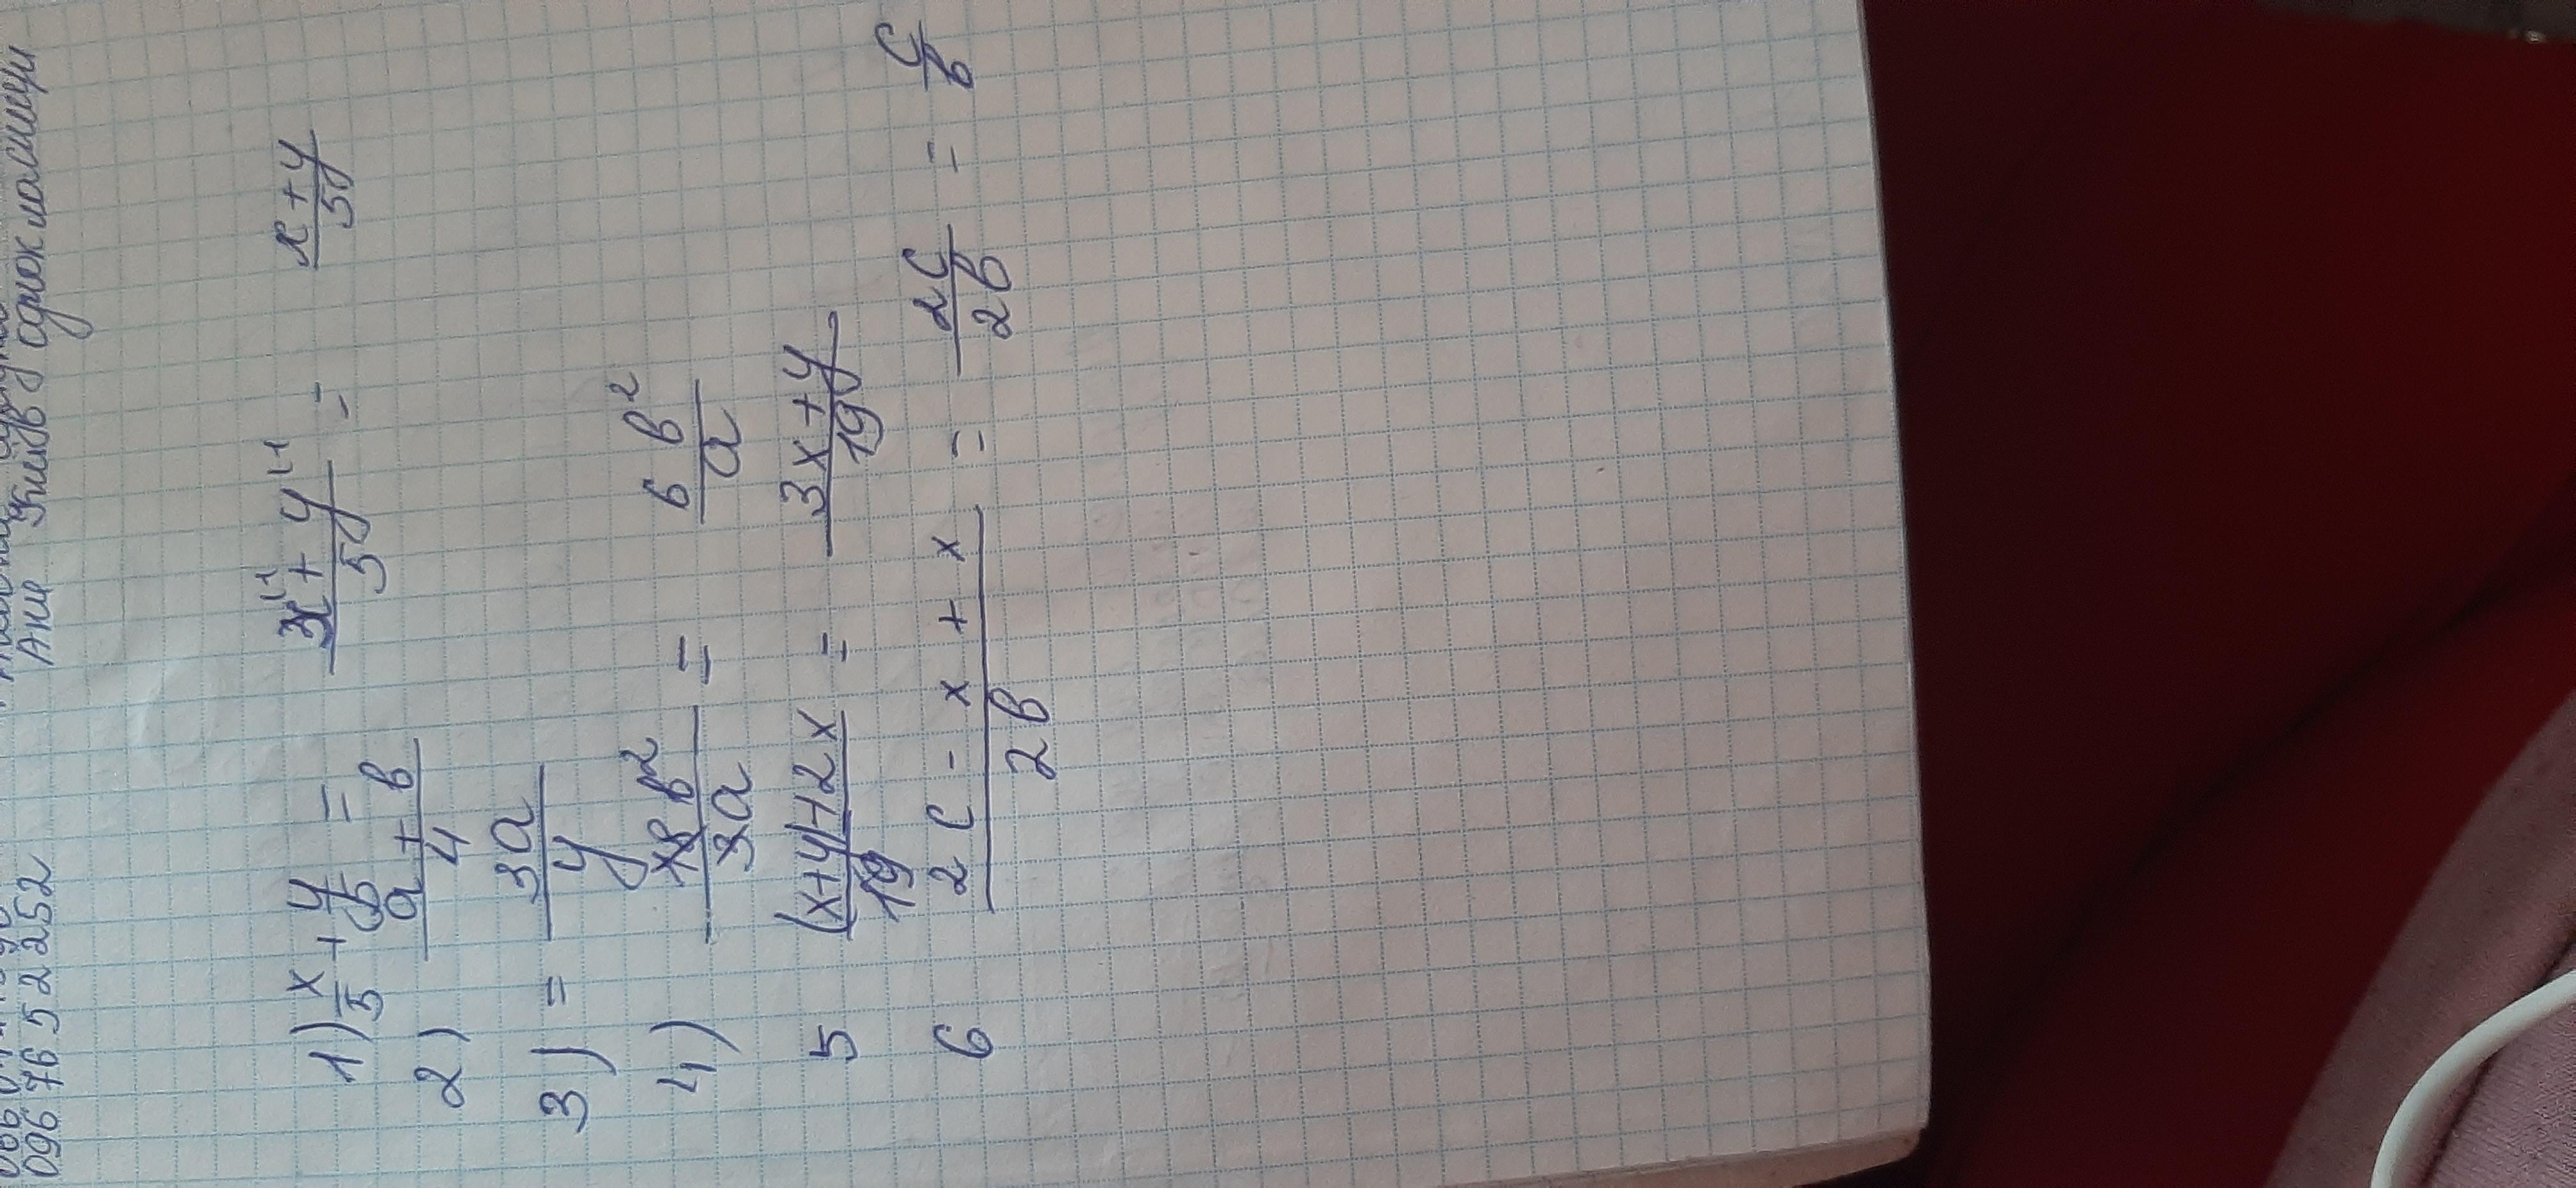 096 76 5 2 2252 Ани Київ однокласниці
1) x/5 + y/5 = x¹¹ + y¹¹/5 = x + y/5
2) a + b/4
3) = 3a/y
4) 18 b²/3a = 6 b²/a
5 (x+y)+2x/19 = 3x+y/19
6 2c - x + x/2b = 2c/2b = c/b